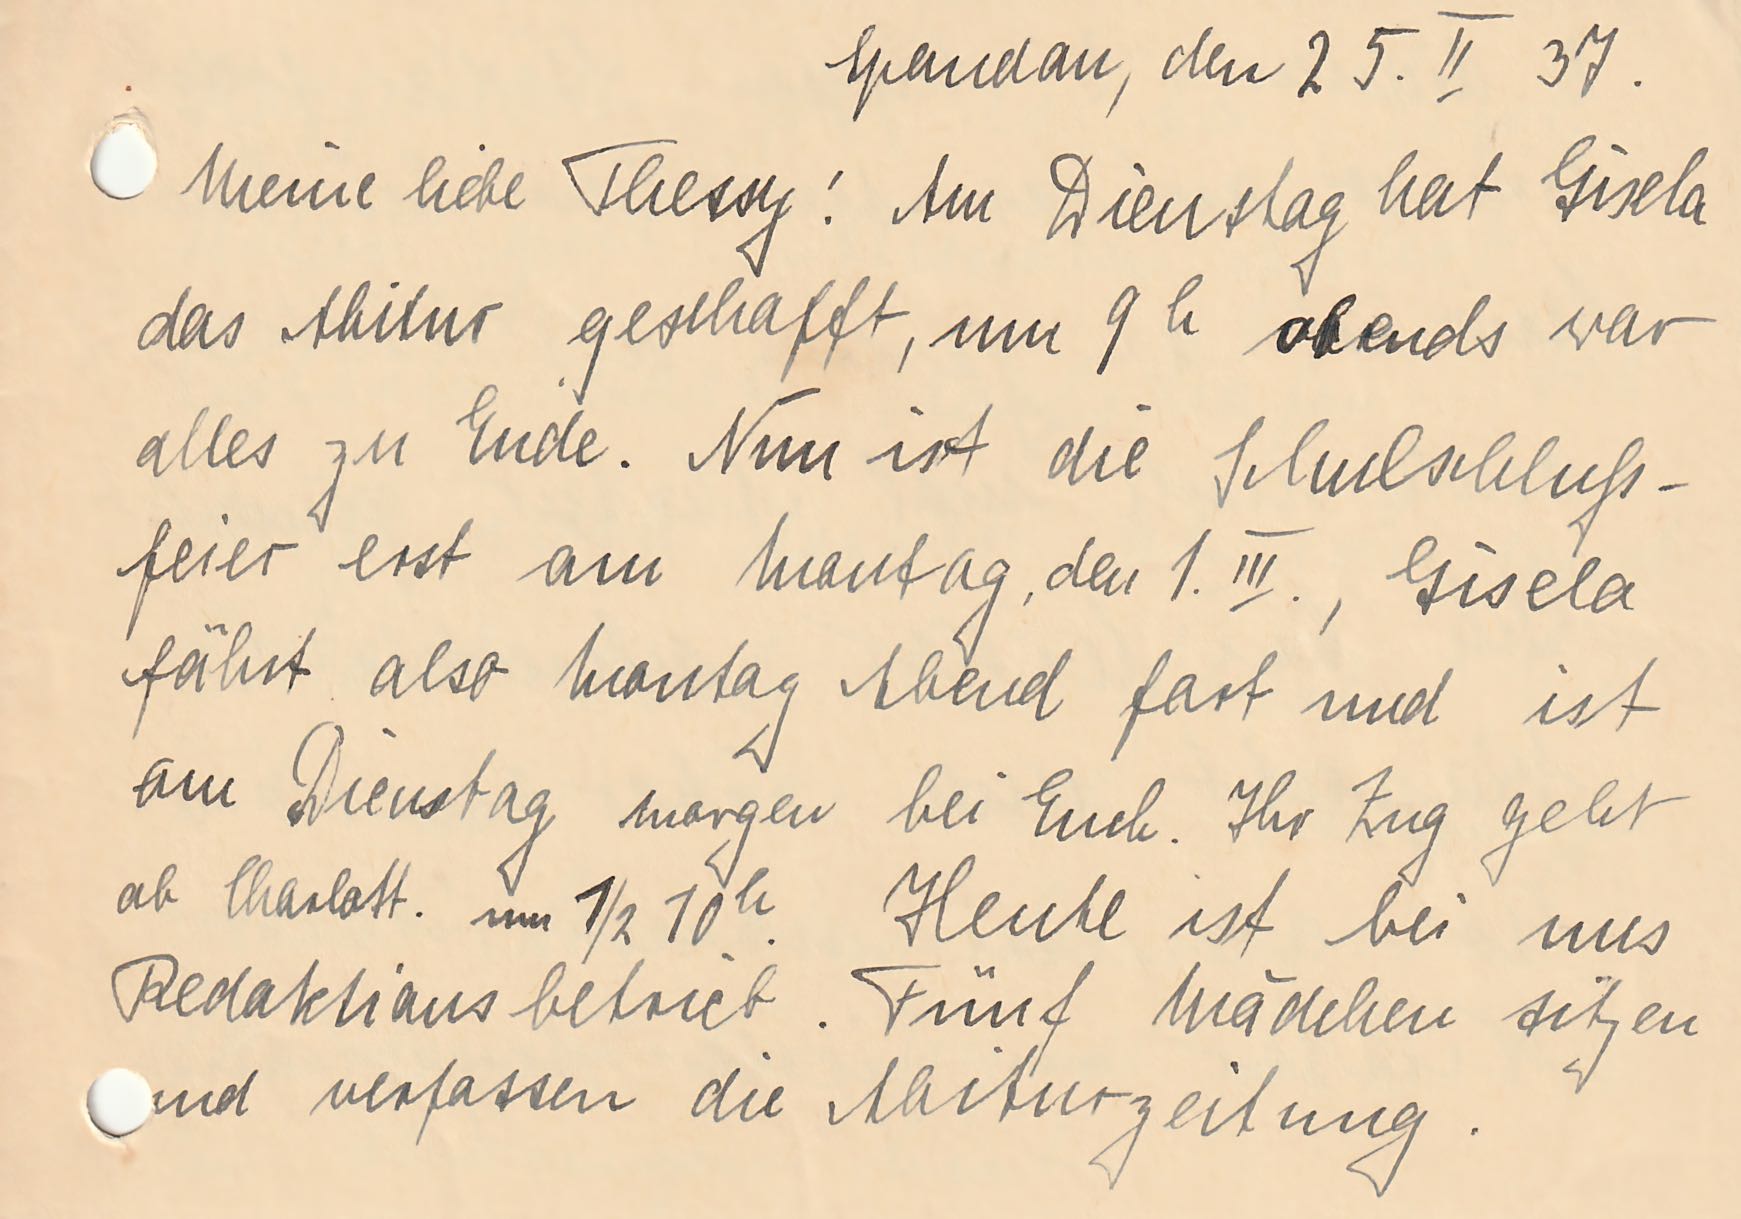 Spandau, den 25. II 37.
Meine liebe Thessy! Am Dienstag hat Gisela
das Abitur geschafft, um 9 h abends war
alles zu Ende. Nun ist die Schulschluß-
feier erst am Montag, den 1. III., Gisela
fährt also Montag Abend fort und ist
am Dienstag morgen bei Euch. Ihr Zug geht
ab Charlott. um 1/2 10 h. Heute ist bei uns
Redaktionsbetrieb. Fünf Mädchen sitzen
und verfassen die Abiturzeitung.